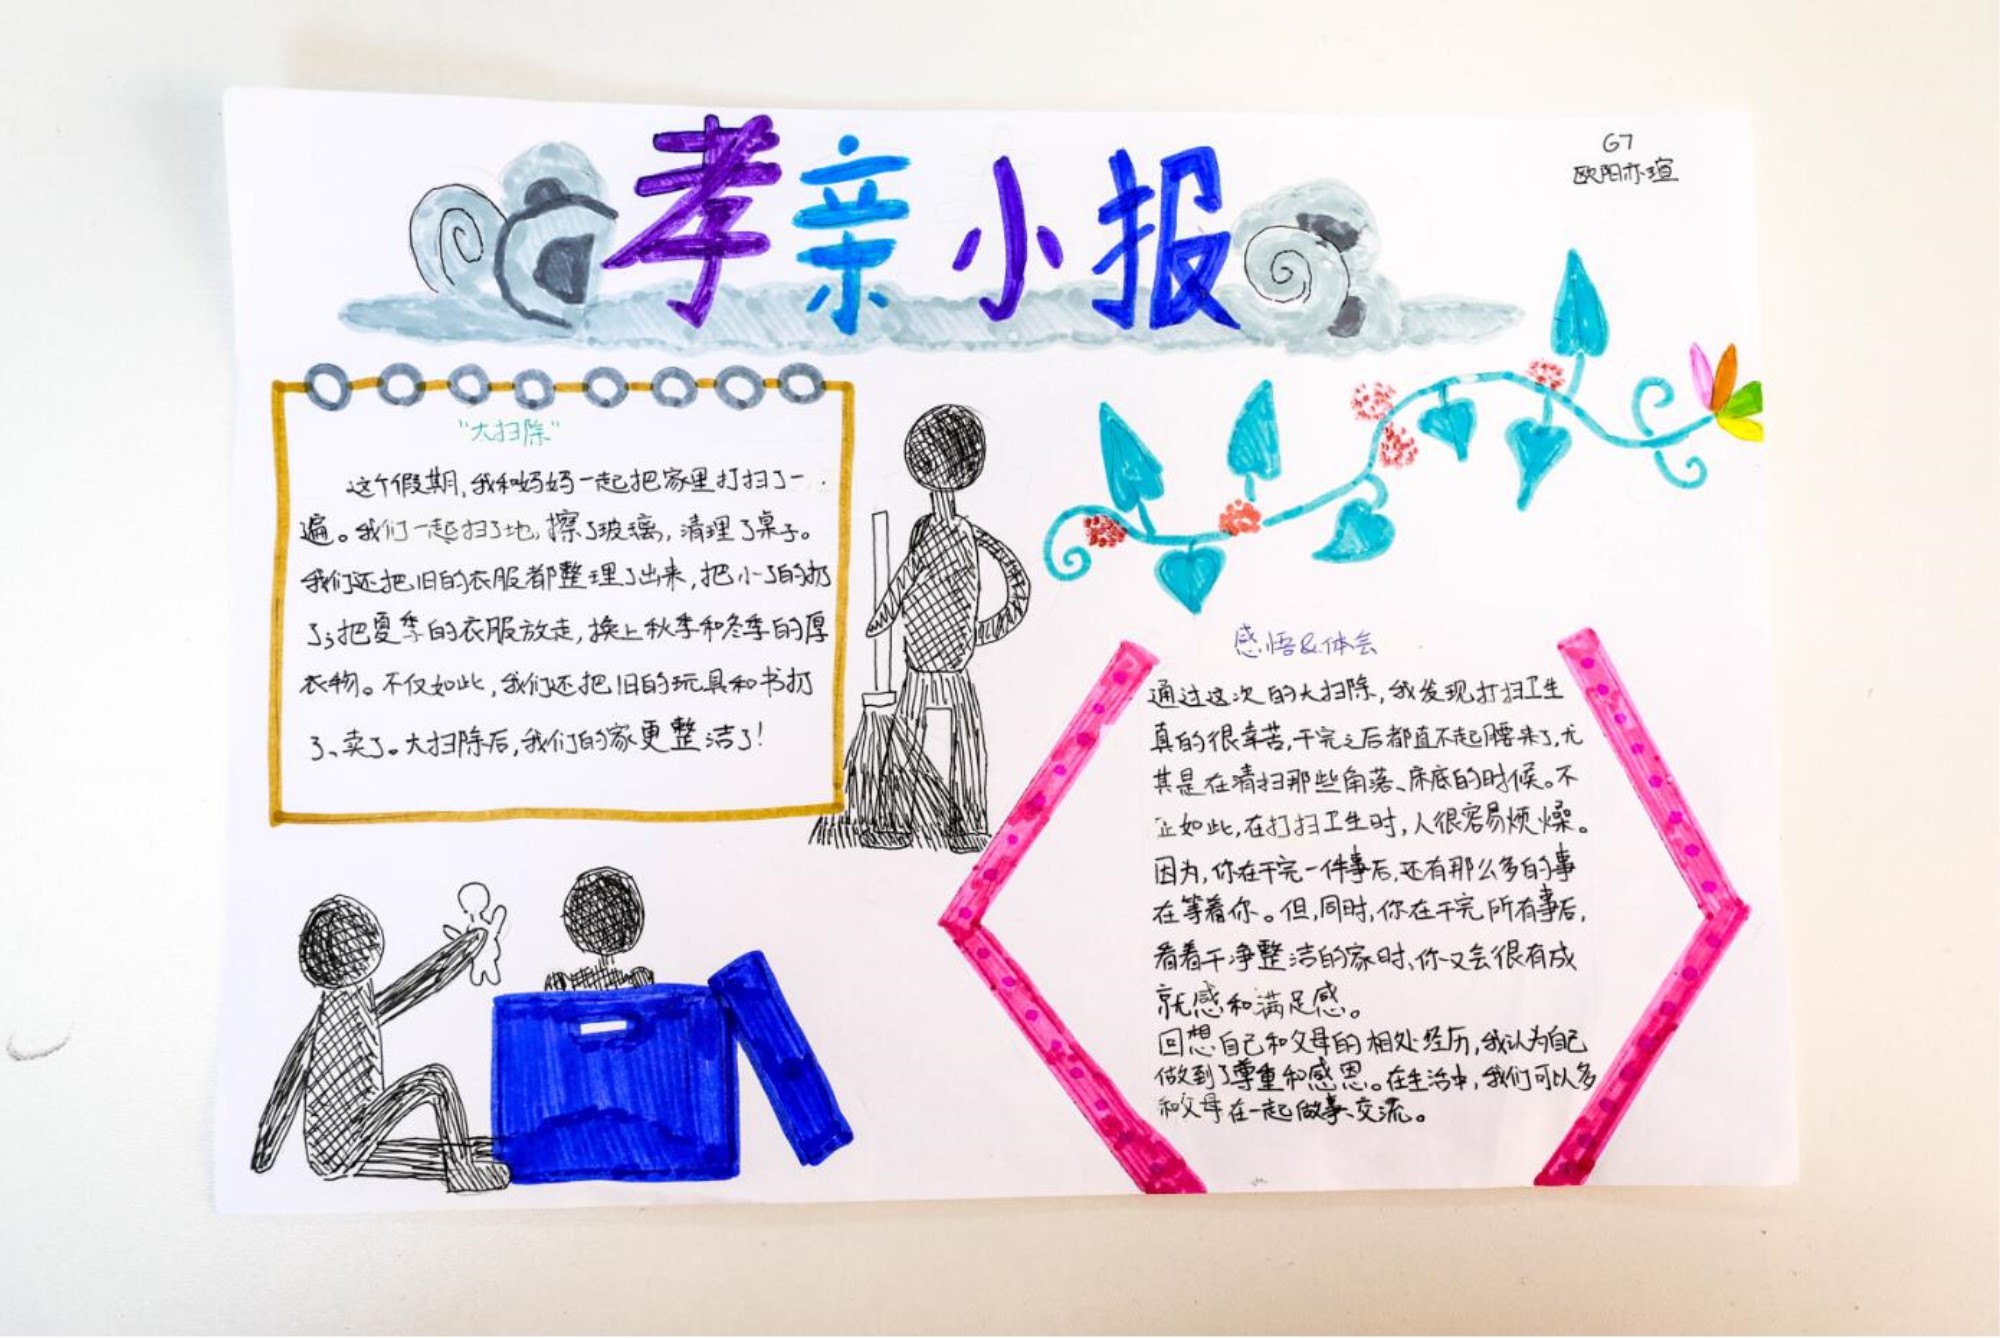 孝亲小报
G7
欧阳亦瑄
“大扫除”
这个假期,我和妈妈一起把家里打扫了一
遍。我们一起扫了地,擦了玻璃,清理了桌子。
我们还把旧的衣服都整理了出来,把小了的扔
了;把夏季的衣服放走,换上秋季和冬季的厚
衣物。不仅如此,我们还把旧的玩具和书扔
了、卖了。大扫除后,我们的家更整洁了!
感悟&体会
通过这次的大扫除,我发现打扫卫生
真的很幸苦,干完之后都直不起腰来了,尤
其是在清扫那些角落、床底的时候。不
止如此,在打扫卫生时,人很容易烦燥。
因为,你在干完一件事后,还有那么多的事
在等着你。但,同时,你在干完所有事后,
看着干净整洁的家时,你又会很有成
就感和满足感。
回想自己和父母的相处经历,我认为自己
做到了尊重和感恩。在生活中,我们可以多
和父母在一起做事、交流。